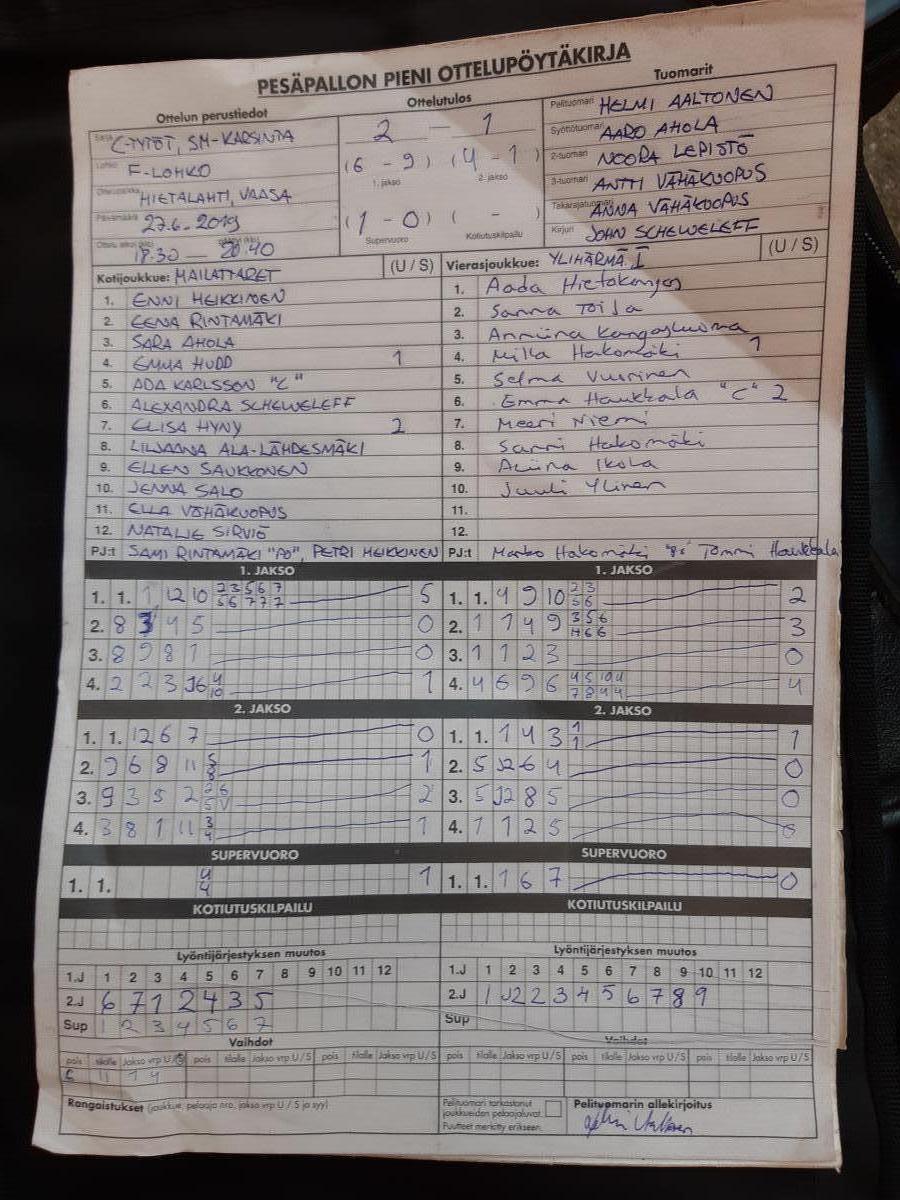 PESÄPALLON PIENI OTTELUPÖYTÄKIRJA
Ottelun perustiedot
Ottelutulos
Tuomarit
Sarja C-TYTÖT, SM-KARSINTA
Lohko F-LOHKO
Ottelupaikka HIETALAHTI, VAASA
Päivämäärä 27.6.-2019
18.30 — 20.40
2 — 1
(6 - 9) (4 - 1)
1. jakso 2. jakso
(1 - 0) ( - )
Supervuoro Kotiutuskilpailu
Pelituomari HELMI AALTONEN
Syöttötuomari AARO AHOLA
2-tuomari NOORA LEPISTÖ
3-tuomari ANTTI VÄHÄKUOPUS
Takarajatuomari ANNA VÄHÄKUOPUS
Kirjuri JOHN SCHEWELEFF
Kotijoukkue: MAILATTARET (U / S)
1. ENNI HEIKKINEN
2. EENA RINTAMÄKI
3. SARA AHOLA
4. EMMA HUDD 1
5. ADA KARLSSON "C"
6. ALEXANDRA SCHEWELEFF
7. ELISA HYNY 2
8. LILJAANA ALA-LÄHDESMÄKI
9. ELLEN SAUKKONEN
10. JENNA SALO
11. ELLA VÄHÄKUOPUS
12. NATALIE SIRVIÖ
PJ:t SAMI RINTAMÄKI "PJ", PETRI HEIKKINEN
Vierasjoukkue: YLIHÄRMÄ I (U / S)
1. Aada Hietakangas
2. Sanna Toija
3. Anniina Kangasluoma
4. Milla Hakomäki 1
5. Selma Vuorinen
6. Emma Haukkala "C" 2
7. Meeri Niemi
8. Sanni Hakomäki
9. Aliina Ikola
10. Juuli Ylinen
11.
12.
PJ:t Marko Hakomäki Tommi Haukkala
1. JAKSO
1. 1. 1 12 10 2 3 5 6 7 5
5 6 7 7 7
2. 8 3 4 5 0
3. 8 9 8 1 0
4. 2 2 3 6 4 1
10
1. JAKSO
1. 1. 4 9 10 2 3 2
5 6
2. 1 1 4 9 3 5 6 3
4 6 6
3. 1 1 2 3 0
4. 4 6 9 6 4 5 10 4 4
7 8 4 4
2. JAKSO
1. 1. 12 6 7 0
2. 9 6 8 11 5 1
8
3. 9 3 5 2 2 6 2
5 V
4. 3 8 1 11 3 1
4
2. JAKSO
1. 1. 1 4 3 1 1
1
2. 5 J2 6 4 0
3. 5 J2 8 5 0
4. 1 1 2 5 0
SUPERVUORO
1. 1. 4 1
4
SUPERVUORO
1. 1. 1 6 7 0
KOTIUTUSKILPAILU
KOTIUTUSKILPAILU
Lyöntijärjestyksen muutos
1.J 1 2 3 4 5 6 7 8 9 10 11 12
2.J 6 7 1 2 4 3 5
Sup 1 2 3 4 5 6 7
Lyöntijärjestyksen muutos
1.J 1 2 3 4 5 6 7 8 9 10 11 12
2.J 1 J2 2 3 4 5 6 7 8 9
Sup
Vaihdot
pois tilalle Jakso vrp U / S pois tilalle Jakso vrp U / S pois tilalle Jakso vrp U / S
C 11 1 4
Vaihdot
pois tilalle Jakso vrp U / S pois tilalle Jakso vrp U / S pois tilalle Jakso vrp U / S
Rangaistukset (joukkue, pelaaja nro, jakso vrp U / S ja syy)
Pelituomari tarkastanut
joukkueiden pelaajaluvat.
Puutteet merkitty erikseen.
Pelituomarin allekirjoitus